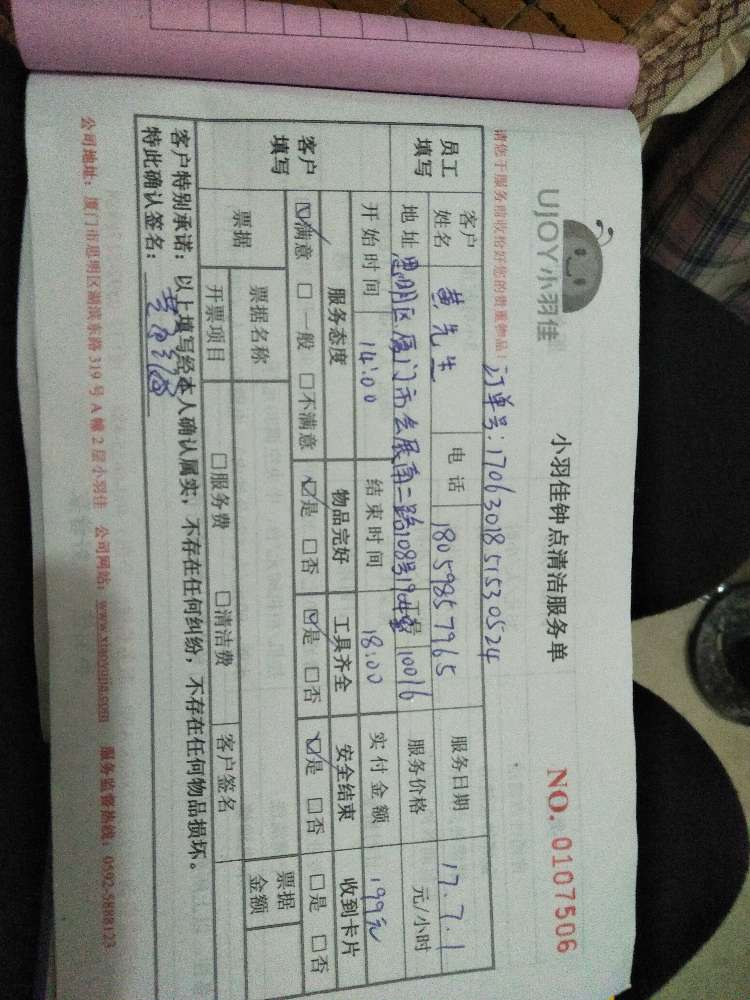 UJOY小羽佳
小羽佳钟点清洁服务单
NO. 0107506
订单号:1706301851530524
请您于服务前收拾好您的贵重物品!
员工填写 客户姓名 黄先生 电话 18059857965 服务日期 17.7.1
地址 思明区厦门市会展南二路108号 工号 10016 服务价格 元/小时
开始时间 14:00 结束时间 18:00 实付金额 199元
客户填写 服务态度 物品完好 工具齐全 安全结束 收到卡片
☑满意 □一般 □不满意 ☑是 □否 ☑是 □否 ☑是 □否 □是 □否
票据 票据名称 票据金额
开票项目 □服务费 □清洁费 客户签名
客户特别承诺:以上填写经本人确认属实,不存在任何纠纷,不存在任何物品损坏。
特此确认签名:
公司地址:厦门市思明区湖滨东路319号A幢2层小羽佳 公司网站:www.xiaoyujia.com 服务监督热线:0592-5888123